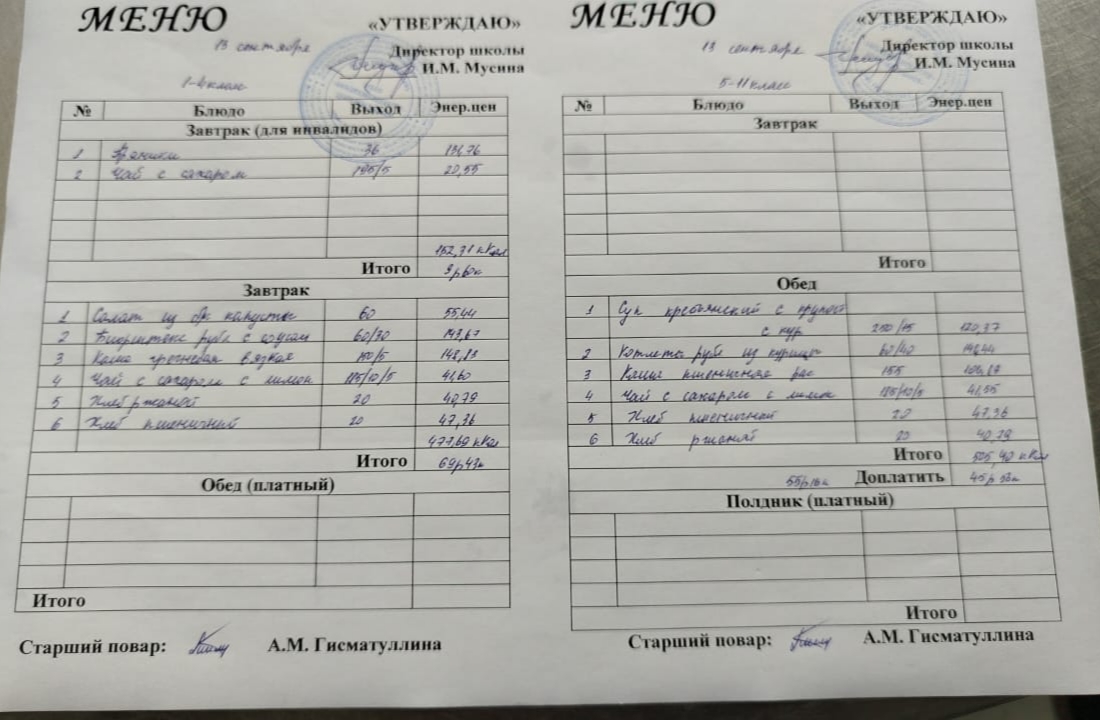 МЕНЮ
«УТВЕРЖДАЮ»
13 сентября
Директор школы
И.М. Мусина
1-4 класс
№ Блюдо Выход Энер.цен
Завтрак (для инвалидов)
1 36 131,76
2 Чай с сахаром 195/5 20,55
152,31 кКал
Итого 9р60к
Завтрак
1 Салат из капусты 60 55,44
2 Бифштекс рубл с соусом 60/30 143,67
3 Каша гречневая вязкая 150/5 148,83
4 Чай с сахаром с лимон 185/10/5 41,60
5 Хлеб ржаной 20 40,79
6 Хлеб пшеничный 20 47,36
477,69 кКал
Итого 69р43к
Обед (платный)
Итого
Старший повар: А.М. Гисматуллина
МЕНЮ
«УТВЕРЖДАЮ»
13 сентября
Директор школы
И.М. Мусина
5-11 класс
№ Блюдо Выход Энер.цен
Завтрак
Итого
Обед
1 Суп крестьянский с крупой
с кур 250/15 120,37
2 Котлета рубл из курицы 60/40
3 Каша пшеничная рас 155
4 Чай с сахаром с лимон 185/10/5 41,55
5 Хлеб пшеничный 20 47,36
6 Хлеб ржаной 20 40,79
Итого 505,40 кКал
55р16к Доплатить
Полдник (платный)
Итого
Старший повар: А.М. Гисматуллина